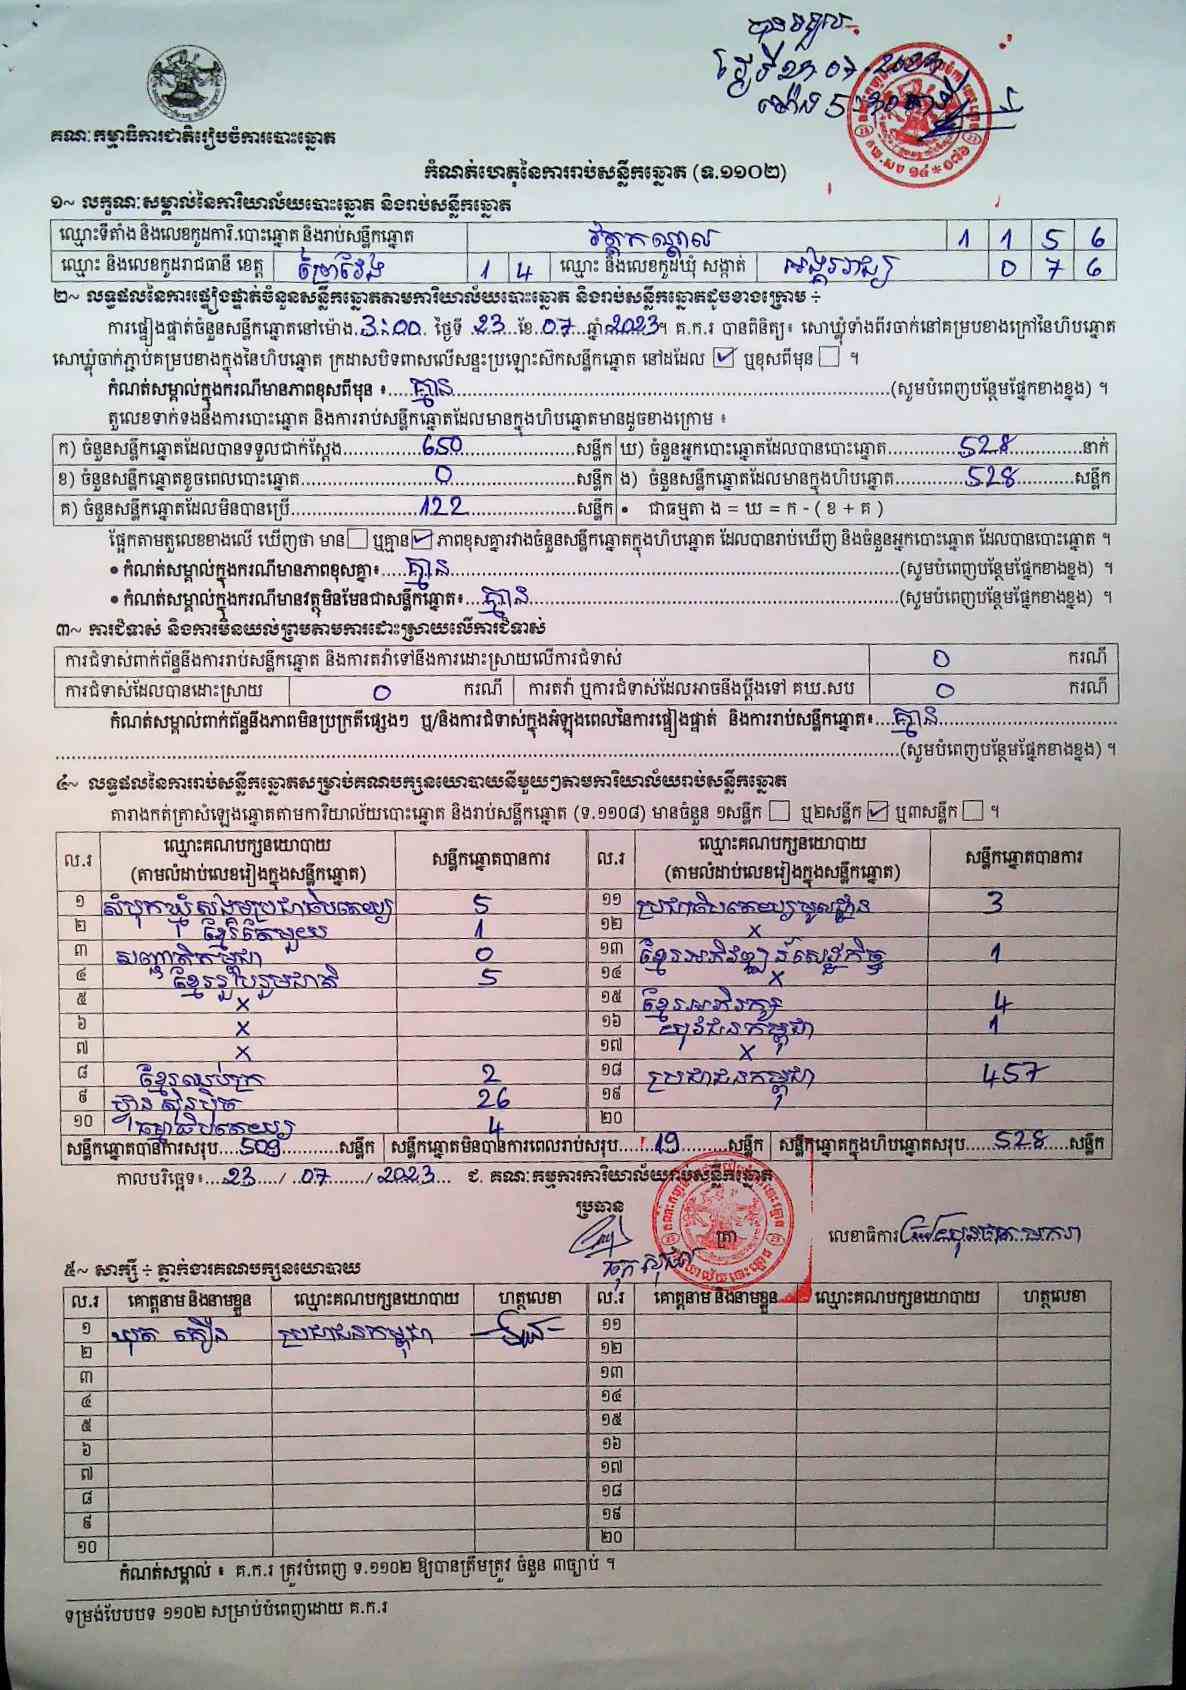 បានទទួល
ថ្ងៃទី២៣ ០៧
ម៉ោង 5
គណៈកម្មាធិការជាតិរៀបចំការបោះឆ្នោត
កំណត់ហេតុនៃការរាប់សន្លឹកឆ្នោត (ទ.១១០២)
១~ លក្ខណៈសម្គាល់នៃការិយាល័យបោះឆ្នោត និងរាប់សន្លឹកឆ្នោត
ឈ្មោះទីតាំង និងលេខកូដការិ.បោះឆ្នោត និងរាប់សន្លឹកឆ្នោត វត្តកណ្តាល 1 1 5 6
ឈ្មោះ និងលេខកូដរាជធានី ខេត្ត ព្រៃវែង 1 4 ឈ្មោះ និងលេខកូដឃុំ សង្កាត់ អង្គររាជ្យ 0 7 6
២~ លទ្ធផលនៃការផ្ទៀងផ្ទាត់ចំនួនសន្លឹកឆ្នោតតាមការិយាល័យបោះឆ្នោត និងរាប់សន្លឹកឆ្នោតដូចខាងក្រោម ÷
ការផ្ទៀងផ្ទាត់ចំនួនសន្លឹកឆ្នោតនៅម៉ោង 3:00 ថ្ងៃទី 23 ខែ 07 ឆ្នាំ 2023។ គ.ក.រ បានពិនិត្យ៖ សោឃ្លុំទាំងពីរចាក់នៅគម្របខាងក្រៅនៃហិបឆ្នោត
សោឃ្លុំចាក់ភ្ជាប់គម្របខាងក្នុងនៃហិបឆ្នោត ក្រដាសបិទពាសលើសន្ទះប្រឡោះស៊កសន្លឹកឆ្នោត នៅដដែល ☑ ឬខុសពីមុន ☐ ។
កំណត់សម្គាល់ក្នុងករណីមានភាពខុសពីមុន ៖ គ្មាន (សូមបំពេញបន្ថែមផ្នែកខាងខ្នង) ។
តួលេខទាក់ទងនឹងការបោះឆ្នោត និងការរាប់សន្លឹកឆ្នោតដែលមានក្នុងហិបឆ្នោតមានដូចខាងក្រោម ៖
ក) ចំនួនសន្លឹកឆ្នោតដែលបានទទួលជាក់ស្តែង 650 សន្លឹក ឃ) ចំនួនអ្នកបោះឆ្នោតដែលបានបោះឆ្នោត 528 នាក់
ខ) ចំនួនសន្លឹកឆ្នោតខូចពេលបោះឆ្នោត 0 សន្លឹក ង) ចំនួនសន្លឹកឆ្នោតដែលមានក្នុងហិបឆ្នោត 528 សន្លឹក
គ) ចំនួនសន្លឹកឆ្នោតដែលមិនបានប្រើ 122 សន្លឹក • ជាធម្មតា ង = ឃ = ក - ( ខ + គ )
ផ្អែកតាមតួលេខខាងលើ ឃើញថា មាន ☐ ឬគ្មាន ☑ ភាពខុសគ្នារវាងចំនួនសន្លឹកឆ្នោតក្នុងហិបឆ្នោត ដែលបានរាប់ឃើញ និងចំនួនអ្នកបោះឆ្នោត ដែលបានបោះឆ្នោត ។
• កំណត់សម្គាល់ក្នុងករណីមានភាពខុសគ្នា៖ គ្មាន (សូមបំពេញបន្ថែមផ្នែកខាងខ្នង) ។
• កំណត់សម្គាល់ក្នុងករណីមានវត្ថុមិនមែនជាសន្លឹកឆ្នោត៖ គ្មាន (សូមបំពេញបន្ថែមផ្នែកខាងខ្នង) ។
៣~ ការជំទាស់ និងការមិនយល់ព្រមតាមការដោះស្រាយលើការជំទាស់
ការជំទាស់ពាក់ព័ន្ធនឹងការរាប់សន្លឹកឆ្នោត និងការតវ៉ាទៅនឹងការដោះស្រាយលើការជំទាស់ 0 ករណី
ការជំទាស់ដែលបានដោះស្រាយ 0 ករណី ការតវ៉ា ឬការជំទាស់ដែលអាចនឹងប្តឹងទៅ គឃ.សប 0 ករណី
កំណត់សម្គាល់ពាក់ព័ន្ធនឹងភាពមិនប្រក្រតីផ្សេងៗ ឬ/និងការជំទាស់ក្នុងអំឡុងពេលនៃការផ្ទៀងផ្ទាត់ និងការរាប់សន្លឹកឆ្នោត៖ គ្មាន
(សូមបំពេញបន្ថែមផ្នែកខាងខ្នង) ។
៤~ លទ្ធផលនៃការរាប់សន្លឹកឆ្នោតសម្រាប់គណបក្សនយោបាយនីមួយៗតាមការិយាល័យរាប់សន្លឹកឆ្នោត
តារាងកត់ត្រាសំឡេងឆ្នោតតាមការិយាល័យបោះឆ្នោត និងរាប់សន្លឹកឆ្នោត (ទ.១១០៨) មានចំនួន ១សន្លឹក ☐ ឬ២សន្លឹក ☑ ឬ៣សន្លឹក ☐ ។
ល.រ ឈ្មោះគណបក្សនយោបាយ (តាមលំដាប់លេខរៀងក្នុងសន្លឹកឆ្នោត) សន្លឹកឆ្នោតបានការ ល.រ ឈ្មោះគណបក្សនយោបាយ (តាមលំដាប់លេខរៀងក្នុងសន្លឹកឆ្នោត) សន្លឹកឆ្នោតបានការ
១ សំបុកឃ្មុំសង្គមប្រជាធិបតេយ្យ 5 ១១ ប្រជាធិបតេយ្យមូលដ្ឋាន 3
២ ខ្មែរតែមួយ 1 ១២ x
៣ សញ្ជាតិកម្ពុជា 0 ១៣ ខ្មែរអភិវឌ្ឍន៍សេដ្ឋកិច្ច 1
៤ ខ្មែររួបរួមជាតិ 5 ១៤ x
៥ x ១៥ ខ្មែរអភិរក្ស 4
៦ x ១៦ យុវជនកម្ពុជា 1
៧ x ១៧ x
៨ ខ្មែរឈប់ក្រ 2 ១៨ ប្រជាជនកម្ពុជា 457
៩ ហ្វ៊ុនស៊ិនប៉ិច 26 ១៩
១០ ធម្មាធិបតេយ្យ 4 ២០
សន្លឹកឆ្នោតបានការសរុប 509 សន្លឹក សន្លឹកឆ្នោតមិនបានការពេលរាប់សរុប 19 សន្លឹក សន្លឹកឆ្នោតក្នុងហិបឆ្នោតសរុប 528 សន្លឹក
កាលបរិច្ឆេទ៖ 23 / 07 / 2023 ជ. គណៈកម្មការការិយាល័យរាប់សន្លឹកឆ្នោត
ប្រធាន ត្រា លេខាធិការ
៥~ សាក្សី ÷ ភ្នាក់ងារគណបក្សនយោបាយ
ល.រ គោត្តនាម និងនាមខ្លួន ឈ្មោះគណបក្សនយោបាយ ហត្ថលេខា ល.រ គោត្តនាម និងនាមខ្លួន ឈ្មោះគណបក្សនយោបាយ ហត្ថលេខា
១ ប្រជាជនកម្ពុជា ១១
២ ១២
៣ ១៣
៤ ១៤
៥ ១៥
៦ ១៦
៧ ១៧
៨ ១៨
៩ ១៩
១០ ២០
កំណត់សម្គាល់ ៖ គ.ក.រ ត្រូវបំពេញ ទ.១១០២ ឱ្យបានត្រឹមត្រូវ ចំនួន ៣ច្បាប់ ។
ទម្រង់បែបបទ ១១០២ សម្រាប់បំពេញដោយ គ.ក.រ